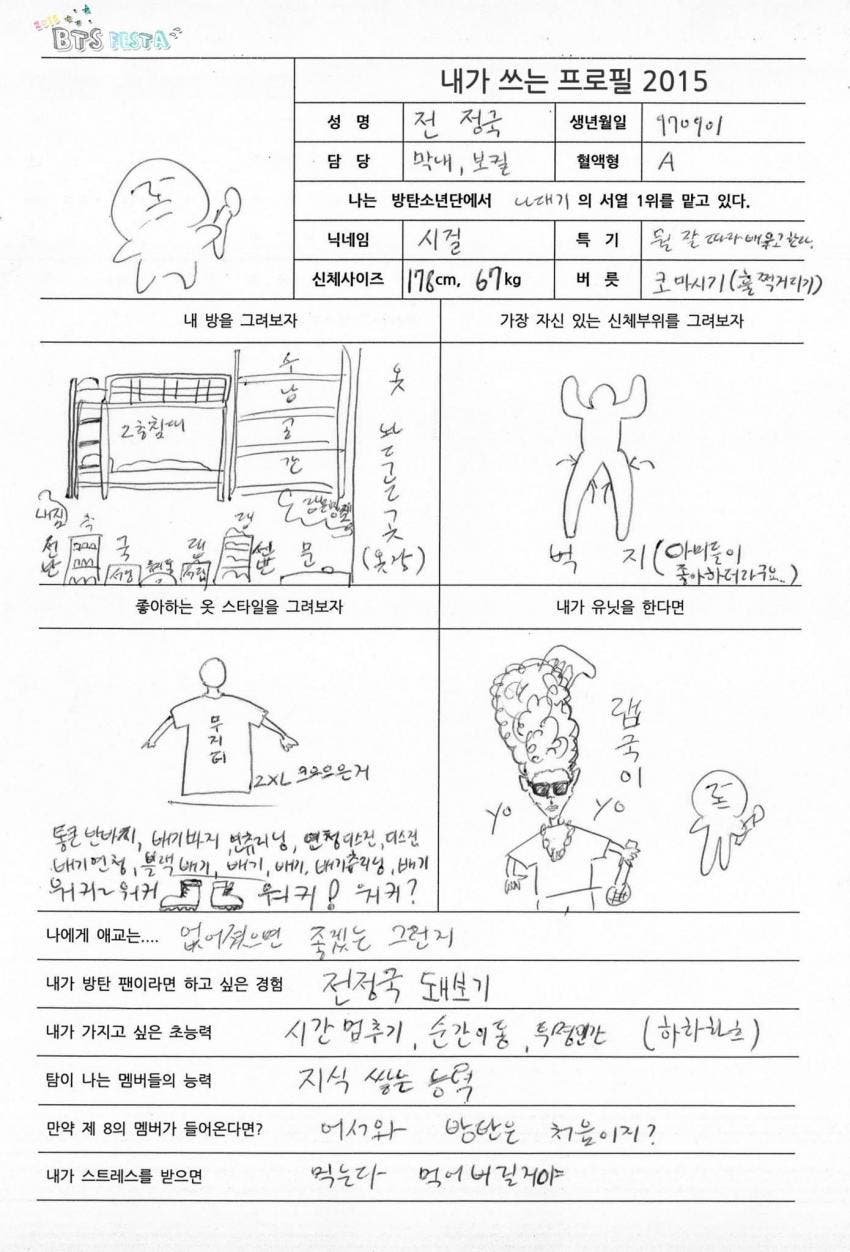 2015
BTS FESTA
내가 쓰는 프로필 2015
성 명 전 정국 생년월일 970901
담 당 막내, 보컬 혈액형 A
나는 방탄소년단에서 나대기 의 서열 1위를 맡고 있다.
닉네임 시걸 특 기 뭘 잘 따라 배우고한다.
신체사이즈 178cm, 67kg 버 릇 코 마시기 (훌쩍거리기)
내 방을 그려보자 가장 자신 있는 신체부위를 그려보자
2층침대
수
납
공
간
옷
놔
두
는
곳
(옷장)
내짐
선반
국
랩
선반
문
벅 지 (아미들이
좋아하더라구요..)
좋아하는 옷 스타일을 그려보자 내가 유닛을 한다면
무
지
티
2XL
통큰 반바지, 배기바지, 연츄리닝, 연청디스진, 디스진
배기연청, 블랙배기, 배기, 배기, 배기츄리닝, 배기
워커~ 워커 워커! 워커?
랩
국
이
yo yo
나에게 애교는.... 없어졌으면 좋겠는 그런지
내가 방탄 팬이라면 하고 싶은 경험 전정국 돼보기
내가 가지고 싶은 초능력 시간 멈추기, 순간이동, 투명인간 (하하하흐)
탐이 나는 멤버들의 능력 지식 쌓는 능력
만약 제 8의 멤버가 들어온다면? 어서와 방탄은 처음이지?
내가 스트레스를 받으면 먹는다 먹어버릴거야